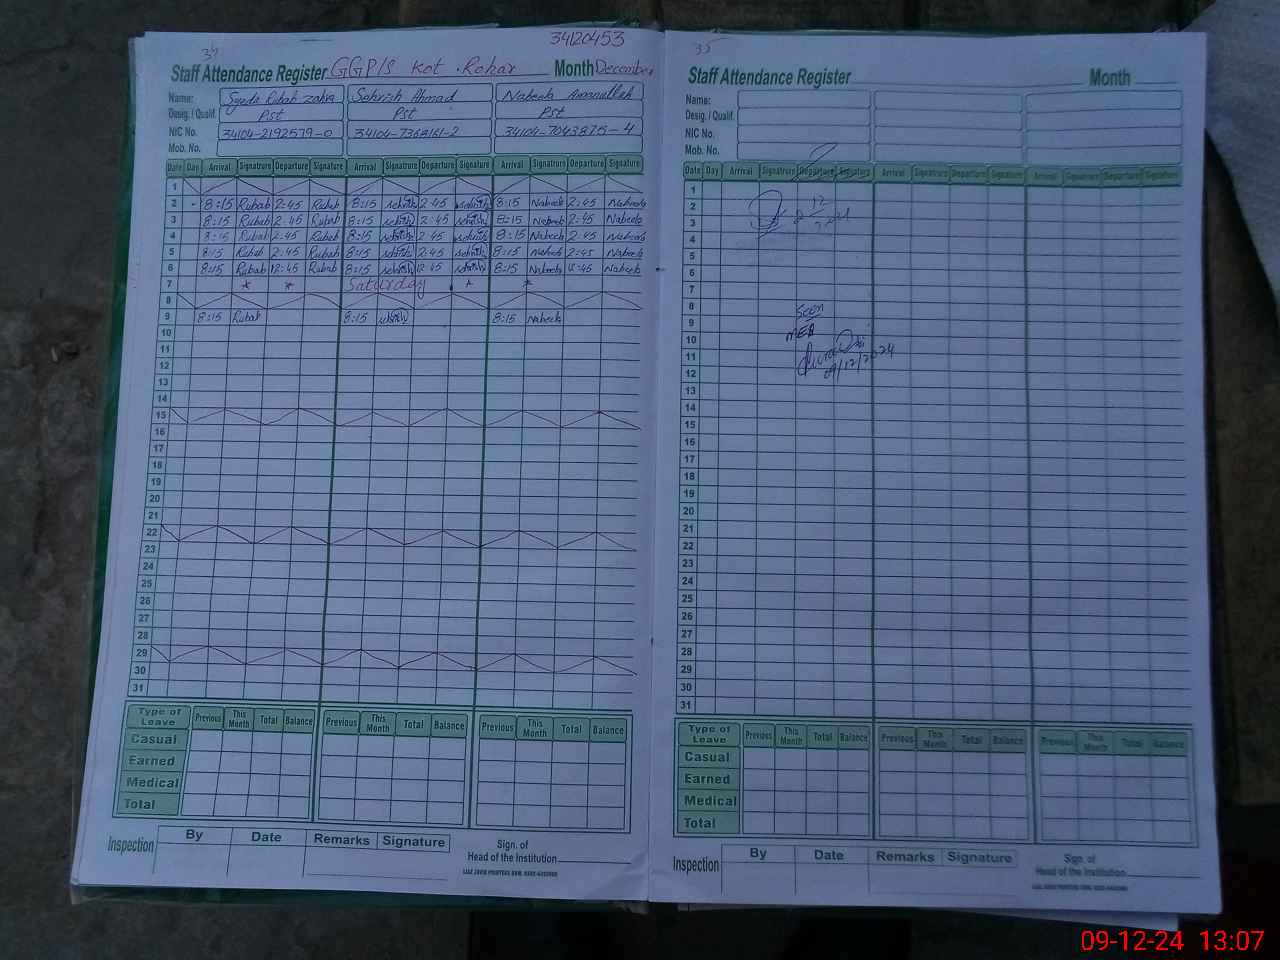 34
34120453
Staff Attendance Register GGP/S Kot .Rohar Month December
Name: Syeda Rubab Zahra Sehrish Ahmad Nabeela Amanullah
Desig. / Qualif. Pst Pst Pst
NIC No. 34104-2192579-0 34104-7368161-2 34104-7043875-4
Mob. No.
Date Day Arrival Signature Departure Signature Arrival Signature Departure Signature Arrival Signature Departure Signature
1
2 8:15 Rubab 2:45 Rubab 8:15 sehrish 2:45 sehrish 8:15 Nabeela 2:45 Nabeela
3 8:15 Rubab 2:45 Rubab 8:15 sehrish 2:45 sehrish 8:15 Nabeela 2:45 Nabeela
4 8:15 Rubab 2:45 Rubab 8:15 sehrish 2:45 sehrish 8:15 Nabeela 2:45 Nabeela
5 8:15 Rubab 2:45 Rubab 8:15 sehrish 2:45 sehrish 8:15 Nabeela 2:45 Nabeela
6 8:15 Rubab 12:45 Rubab 8:15 sehrish 12:45 sehrish 8:15 Nabeela 12:45 Nabeela
7 * * Saturday * *
8
9 8:15 Rubab 8:15 sehrish 8:15 Nabeela
10
11
12
13
14
15
16
17
18
19
20
21
22
23
24
25
26
27
28
29
30
31
Type of Leave Previous This Month Total Balance Previous This Month Total Balance Previous This Month Total Balance
Casual
Earned
Medical
Total
Inspection By Date Remarks Signature Sign. of
Head of the Institution
35
Staff Attendance Register Month
Name:
Desig. / Qualif.
NIC No.
Mob. No.
Date Day Arrival Signature Departure Signature Arrival Signature Departure Signature Arrival Signature Departure Signature
1
2
3
4
5
6
7
8
9 Seen
10 MEA
11
12 09/12/2024
13
14
15
16
17
18
19
20
21
22
23
24
25
26
27
28
29
30
31
Type of Leave Previous This Month Total Balance Previous This Month Total Balance Previous This Month Total Balance
Casual
Earned
Medical
Total
Inspection By Date Remarks Signature Sign. of
Head of the Institution
09-12-24 13:07